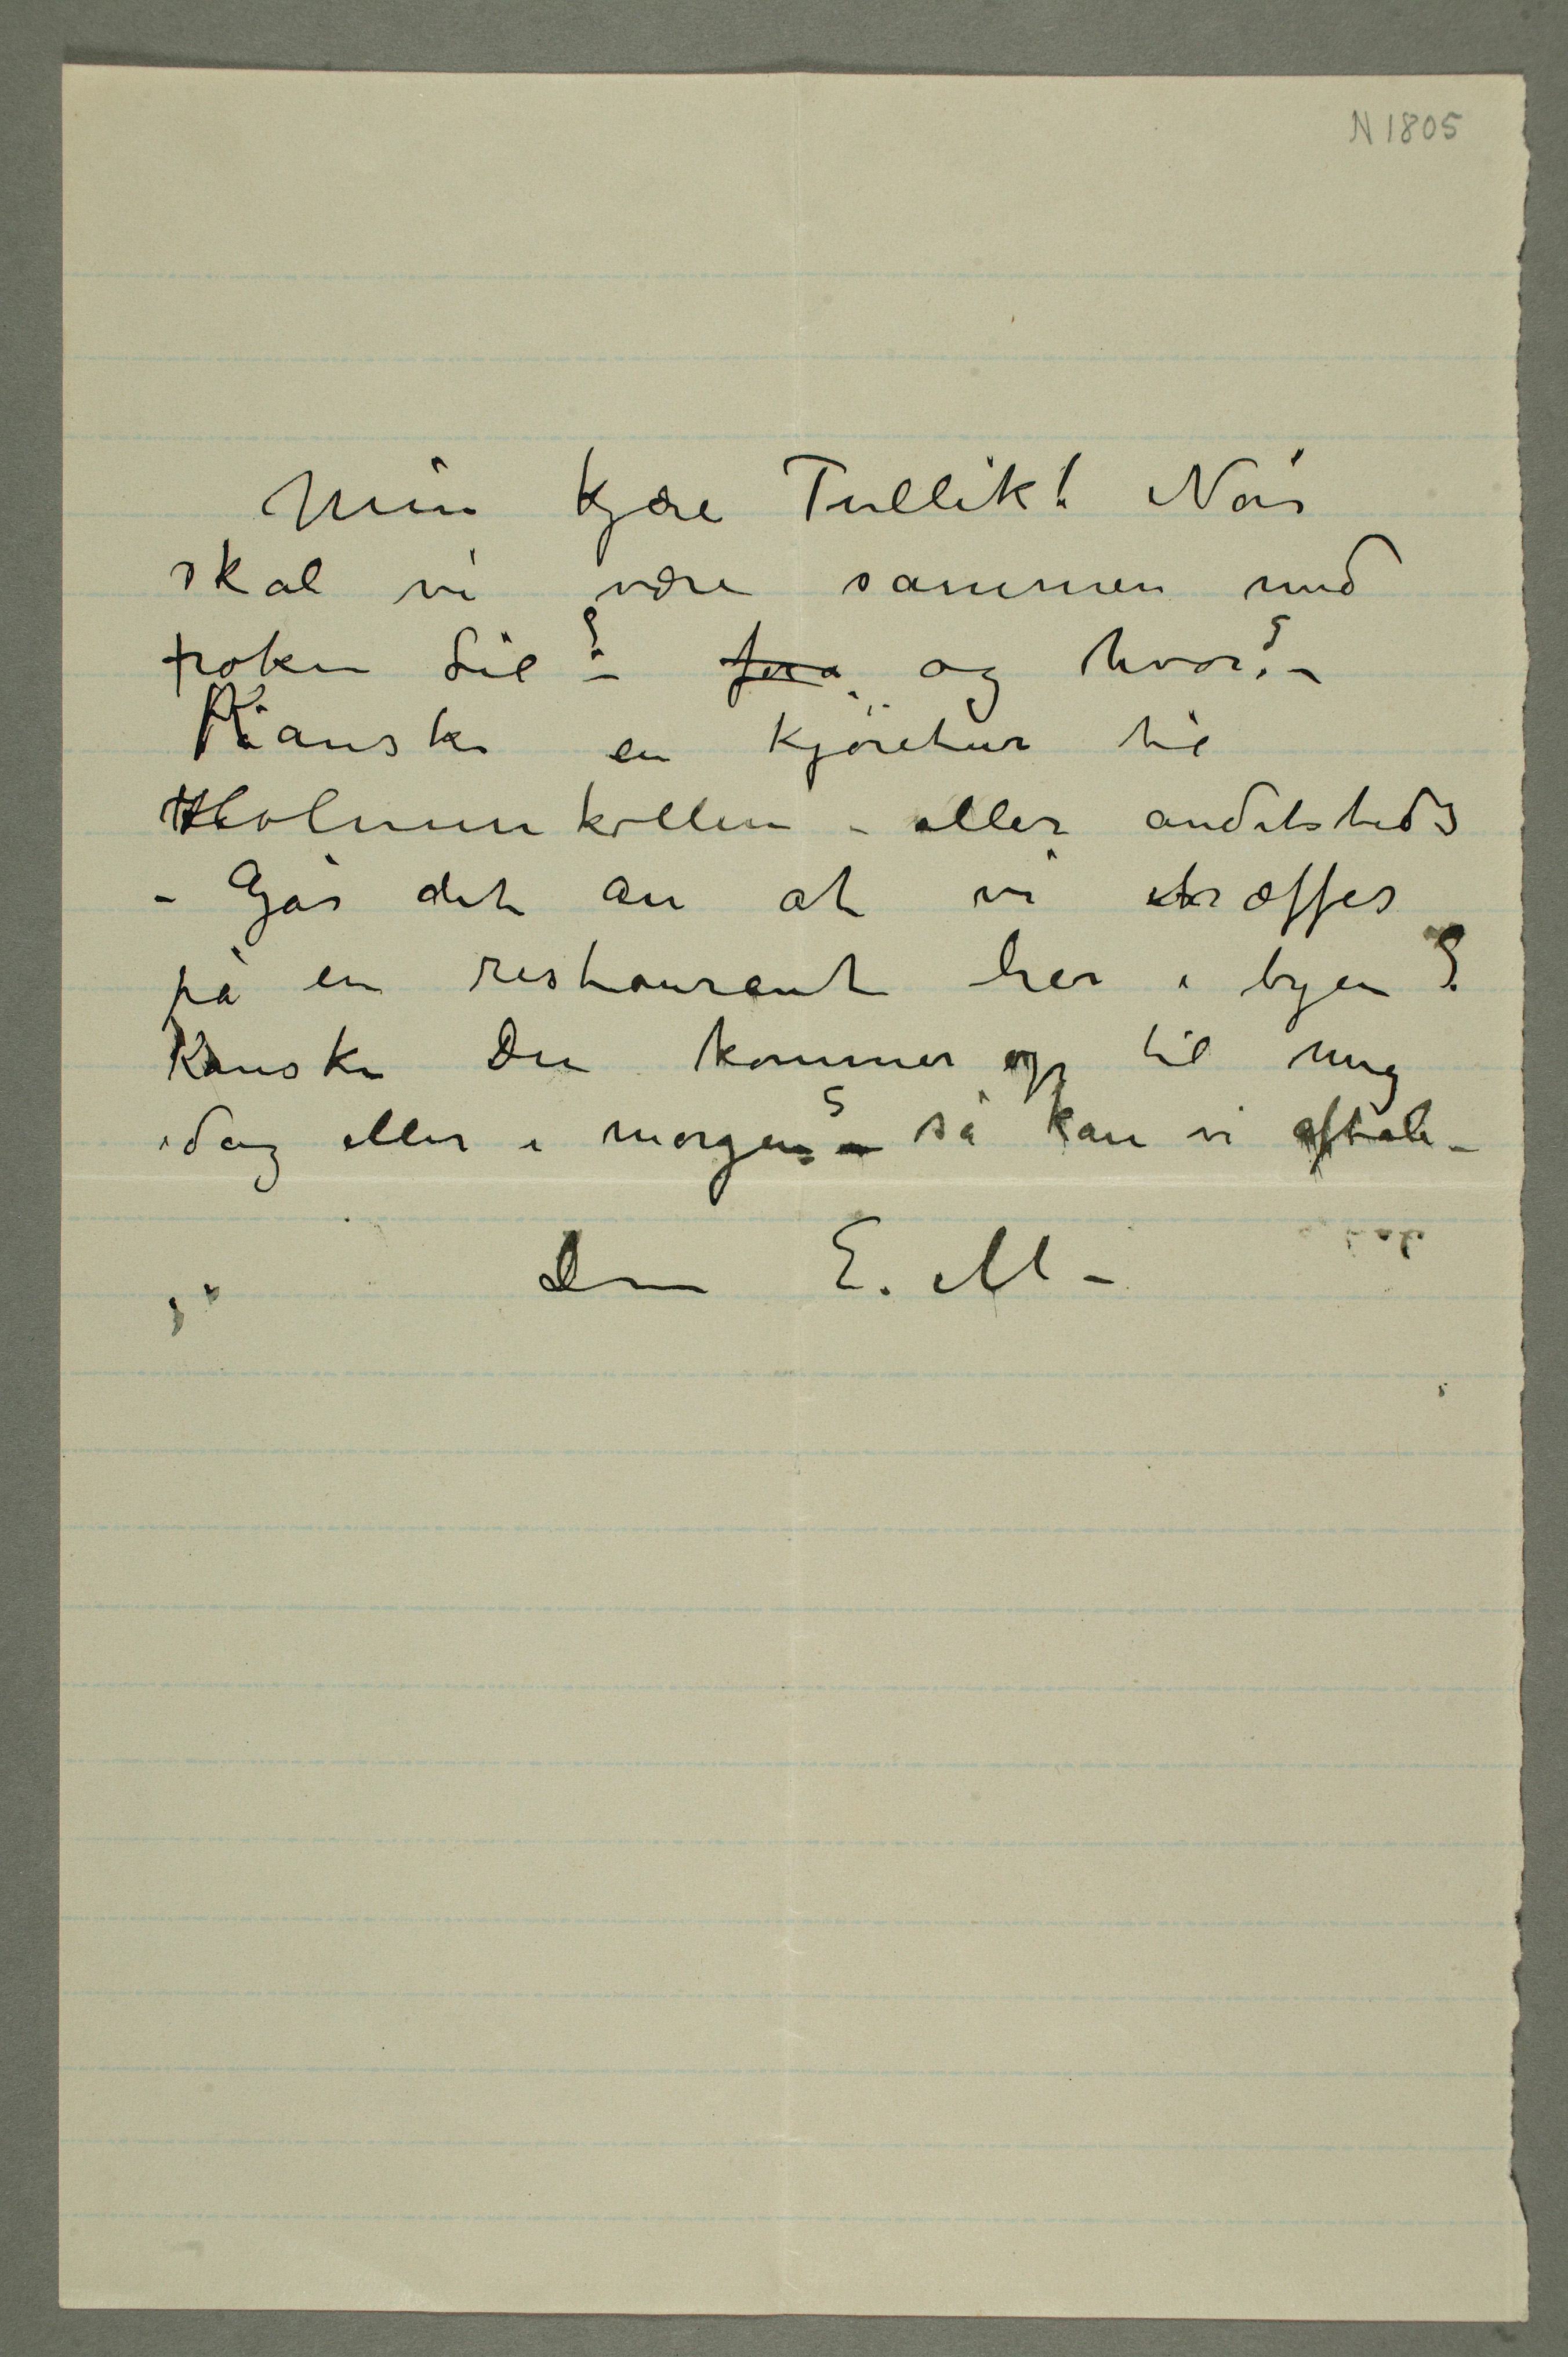 N 1805
Min kjære Tullik! Når
skal vi være sammen med
frøken Lil? – og hvor? –
Kanske en kjøretur til
Holmenkollen – eller andetsteds
– Går det an at vi træffes
på en restaurant her i byen?
Kanske Du kommer op til mig
idag eller i morgen? – så kan vi aftale –
Din E. M –